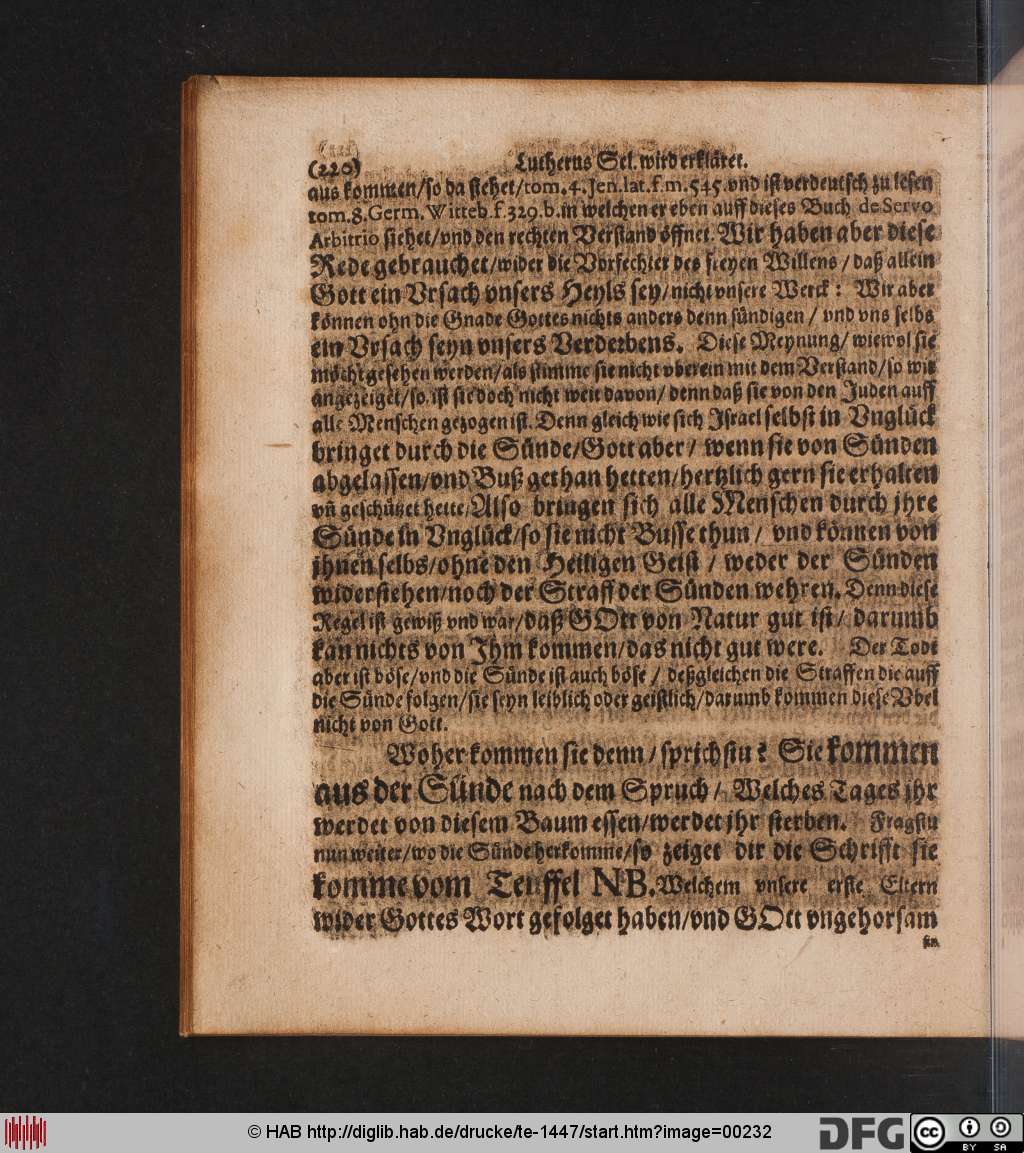 (220) Lutherus Sel. wird erkläret.
aus kommen/so da stehet/tom. 4. Jen. lat. f. m. 545. vnd ist verdeutsch zu lesen
tom. 8. Germ. Witteb. f. 329. b. in welchen er eben auff dieses Buch de Servo
Arbitrio siehet/vnd den rechten Verstand öffnet. Wir haben aber diese
Rede gebrauchet/wider die Vorfechter des freyen Willens / daß allein
Gott ein Vrsach vnsers Heyls sey/nicht vnsere Werck: Wir aber
können ohn die Gnade Gottes nichts anders denn sündigen / vnd vns selbs
ein Vrsach seyn vnsers Verderbens. Diese Meynung/ wiewol sie
möcht gesehen werden/als stimme sie nicht vberein mit dem Verstand/so wir
angezeiget/so ist sie doch nicht weit davon/ denn daß sie von den Juden auff
alle Menschen gezogen ist. Denn gleich wie sich Israel selbst in Vnglück
bringet durch die Sünde/Gott aber/ wenn sie von Sünden
abgelassen/vnd Buß gethan hetten/hertzlich gern sie erhalten
vñ geschützet hette/Also bringen sich alle Menschen durch jhre
Sünde in Vnglück/so sie nicht Busse thun / vnd können von
jhnen selbs/ohne den Heiligen Geist / weder der Sünden
widerstehen/noch der Straff der Sünden wehren. Denn diese
Regel ist gewiß vnd war/daß GOtt von Natur gut ist/ darumb
kan nichts von Jhm kommen/das nicht gut were. Der Todt
aber ist böse/vnd die Sünde ist auch böse / deßgleichen die Straffen die auff
die Sünde folgen/sie seyn leiblich oder geistlich/darumb kommen diese Vbel
nicht von Gott.
Woher kommen sie denn/sprichstu? Sie kommen
aus der Sünde nach dem Spruch/ Welches Tages jhr
werdet von diesem Baum essen/werdet jhr sterben. Fragstu
nun weiter/wo die Sünde herkomme/so zeiget dir die Schrifft sie
komme vom Teuffel NB. Welchem vnsere erste Eltern
wider Gottes Wort gefolget haben/vnd GOtt vngehorsam
© HAB http://diglib.hab.de/drucke/te-1447/start.htm?image=00232
DFG cc BY SA